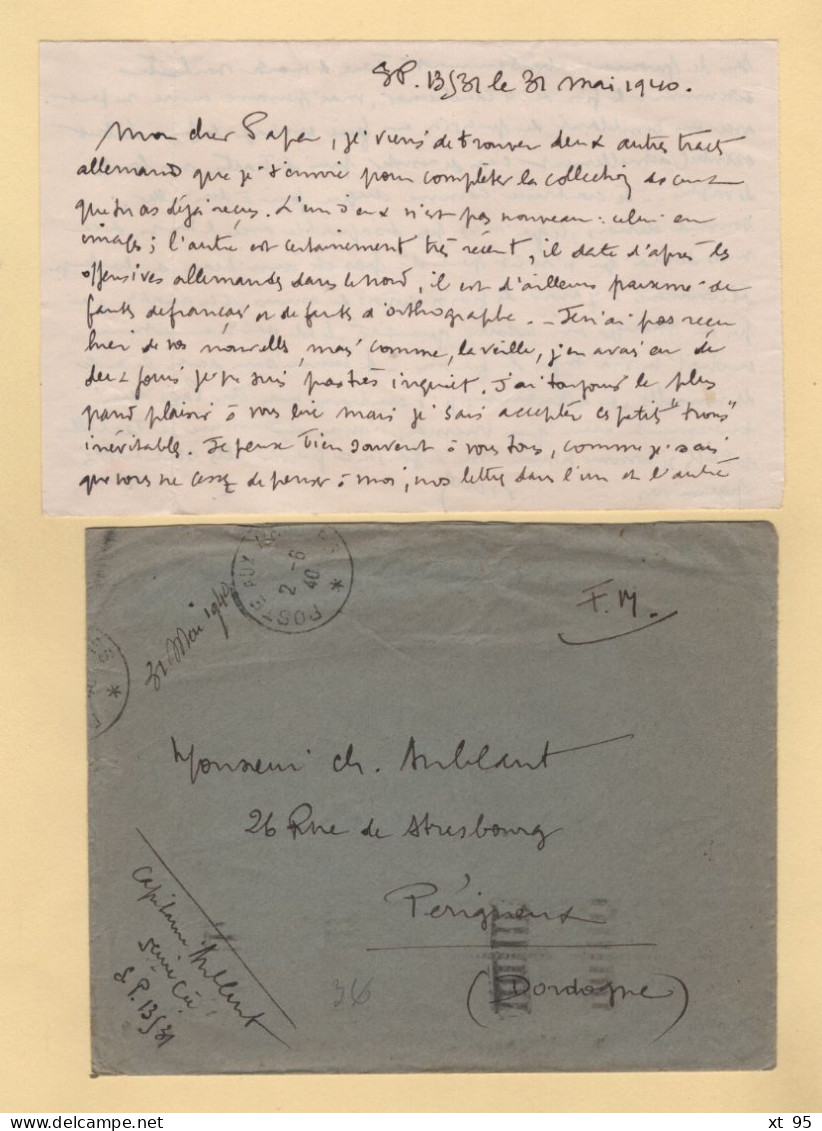 S.P. 13531 le 31 mai 1940.
Mon cher Papa, je viens de trouver deux autres tracts
allemand que je t'envoie pour compléter la collection de ceux
que tu as déjà reçus. L'un d'eux n'est pas nouveau : celui en
images ; l'autre est certainement très récent, il date d'après les
offensives allemandes dans le nord, il est d'ailleurs parsemé de
fautes de français et de fautes d'orthographe. _ Je n'ai pas reçu
hier de vos nouvelles, mais comme, la veille, j'en avais eu de
deux fois je ne suis pas très inquiet. J'ai toujours le plus
grand plaisir à vous lire mais je sais accepter ces petits "trous"
inévitables. Je pense bien souvent à vous tous, comme je sais
que vous ne cessez de penser à moi, nos lettres dans l'un et l'autre
POSTE AUX
2 - 6
40
31 Mai 1940
F.M.
Monsieur Ch. Aublant
26 Rue de Strasbourg
Périgueux
(Dordogne)
Capitaine Aublant
S.P. 13531
36
xt 95